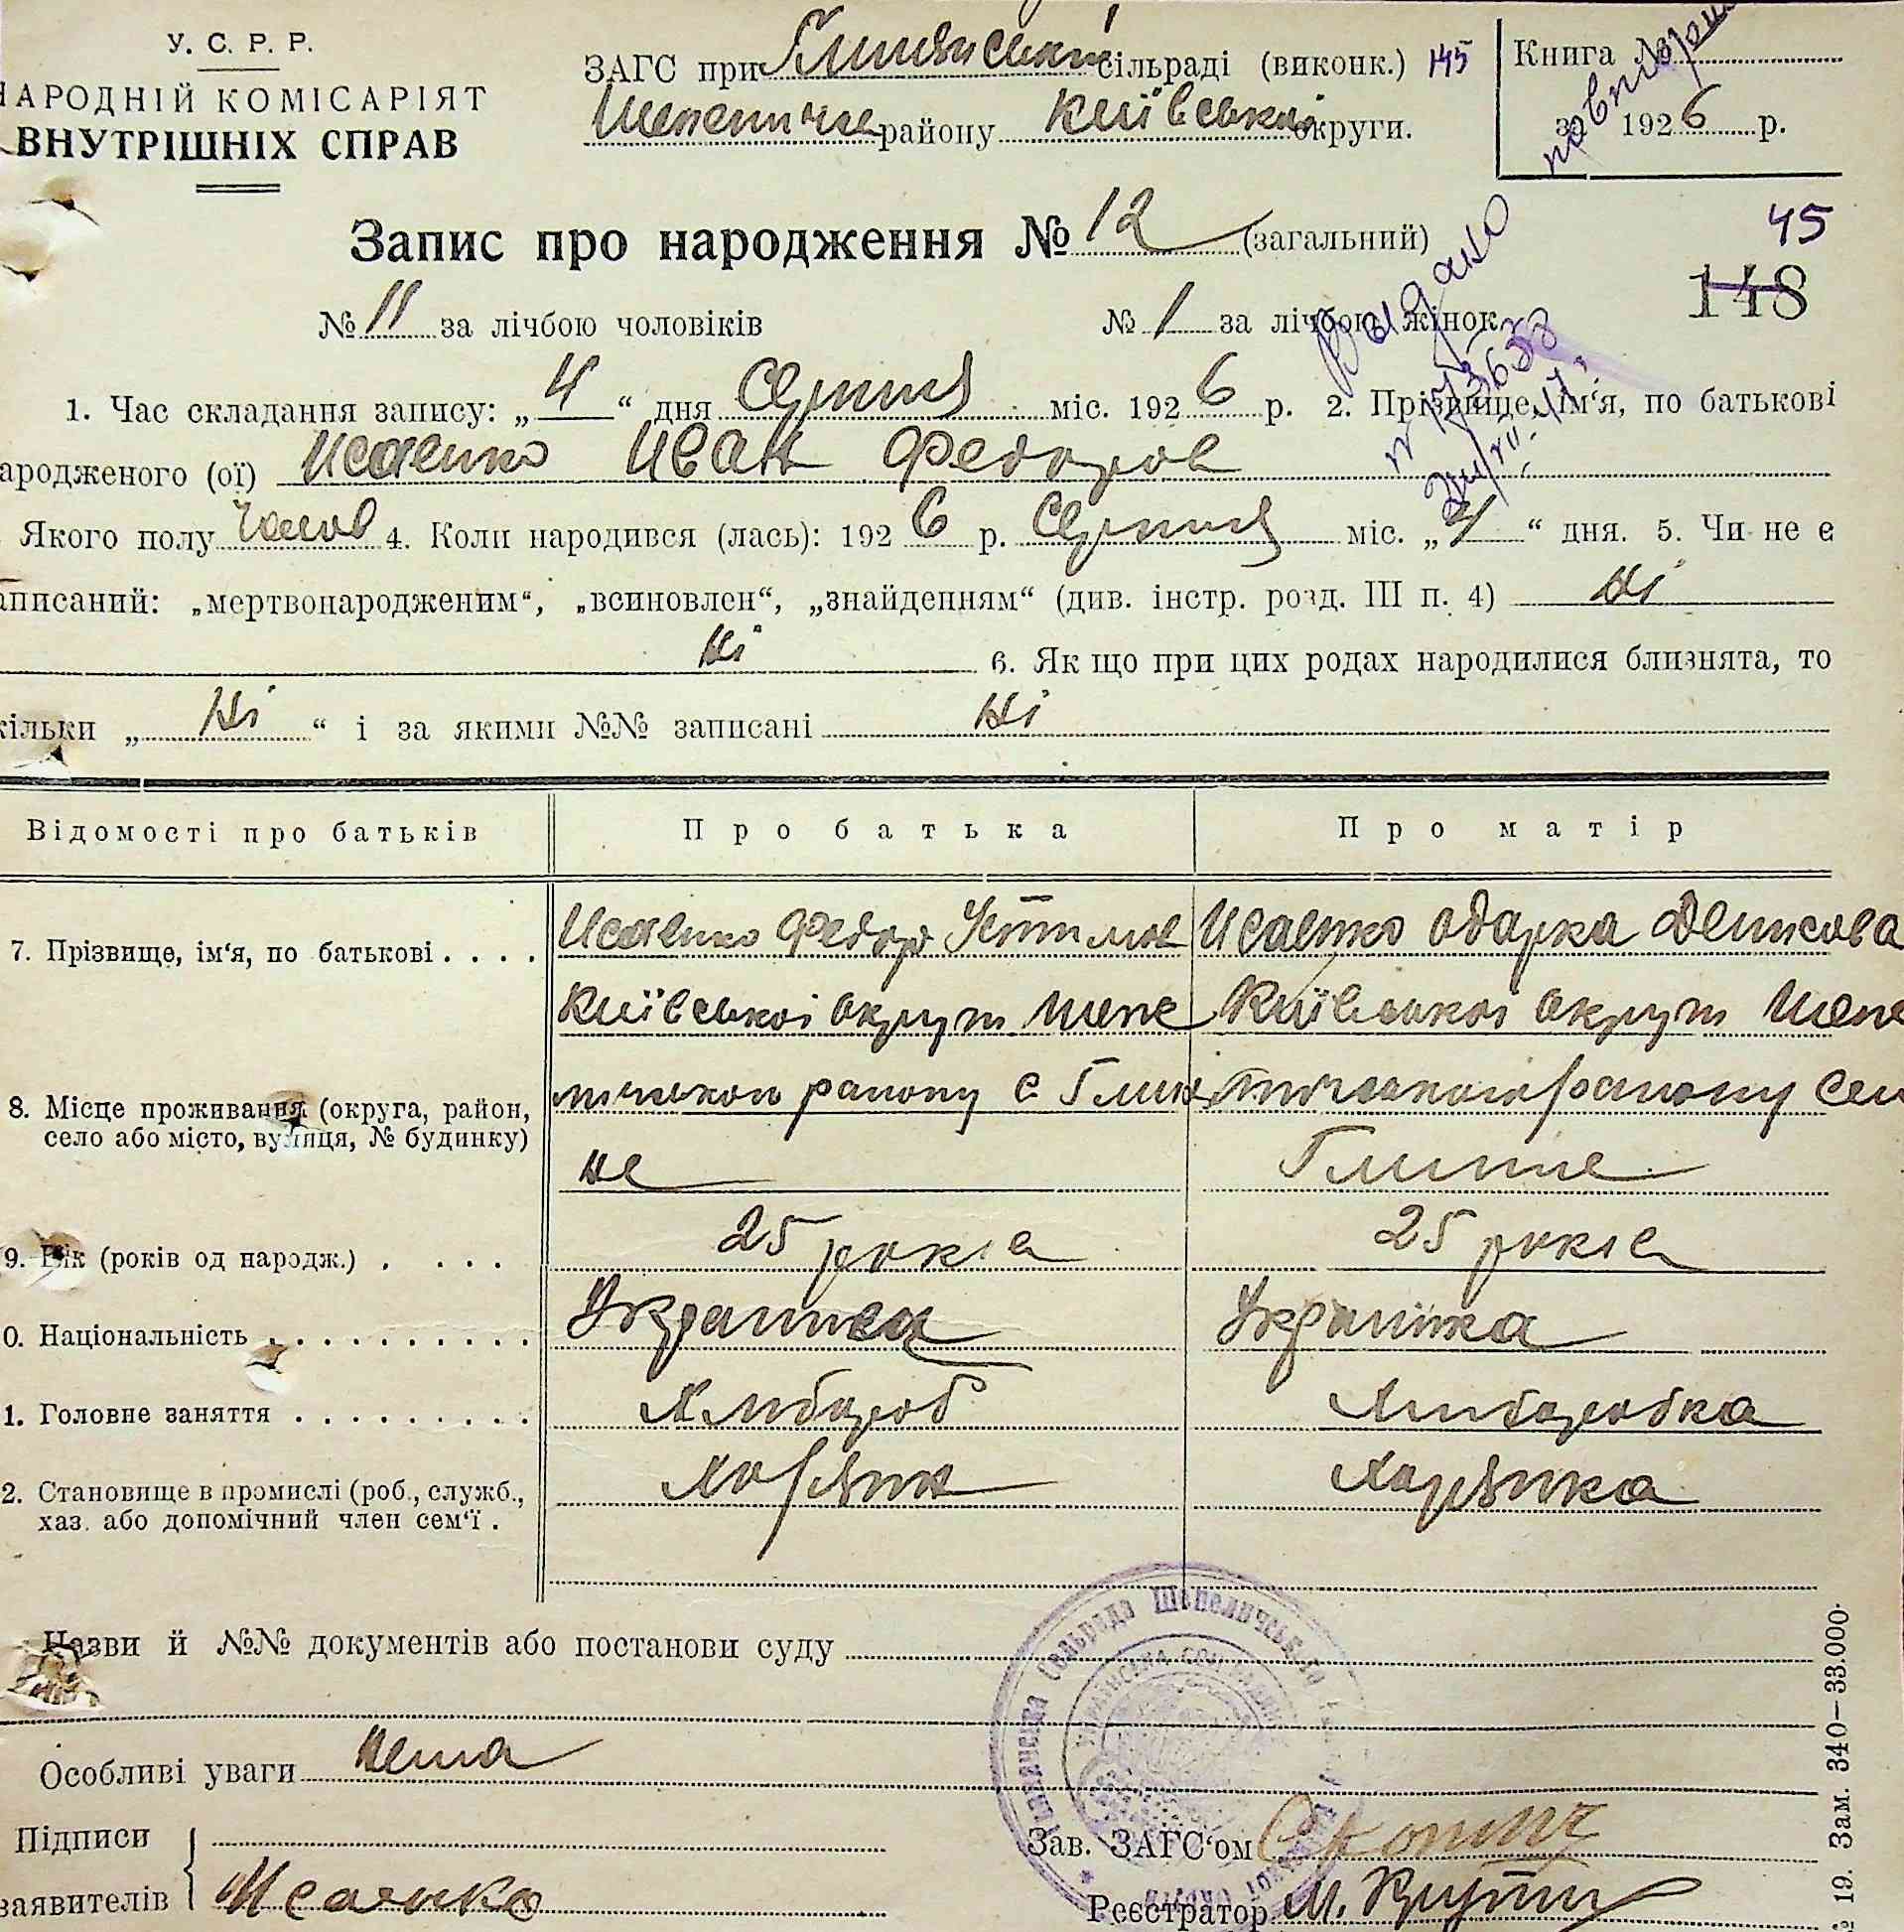 У. С. Р. Р.
НАРОДНІЙ КОМІСАРІЯТ
ВНУТРІШНІХ СПРАВ
ЗАГС при сільраді (виконк.) 145
району Київської округи.
Книга №
за 1926 р.
повторно
Запис про народження № 12 (загальний)
45
148
№ 11 за лічбою чоловіків № 1 за лічбою жінок
Видано
1. Час складання запису: „ 4 “ дня Серпня міс. 1926 р. 2. Прізвище, ім‘я, по батькові
народженого (ої) Исаенко Иван Федоров
Якого полу Чолов 4. Коли народився (лась): 1926 р. Серпня міс. „4“ дня. 5. Чи не є
записаний: „мертвонародженим“, „всиновлен“, „знайденням“ (див. інстр. розд. III п. 4) Ні
Ні 6. Як що при цих родах народилися близнята, то
кільки „ Ні “ і за якими №№ записані Ні
Відомості про батьків Про батька Про матір
7. Прізвище, ім‘я, по батькові . . . . Исаенко Федор Исаенко Одарка Денисова
Київської округи Шепе Київської округи Шепе
8. Місце проживання (округа, район, село або місто, вулиця, № будинку)
району с Глин району сел
не Глинне
9. Вік (років од народж.) . . . . 25 років 25 років
0. Національність . . . . . . . . . . Українец Українка
1. Головне заняття . . . . . . . . . Хлибороб Хлиборобка
2. Становище в промислі (роб., служб., хаз. або допомічний член сем‘ї . Хазяин Хазяика
Назви й №№ документів або постанови суду
Особливі уваги Нема
Підписи
заявителів Исаенко
Зав. ЗАГС‘ом
Реєстратор М.
№ 19. Зам. 340—33.000.